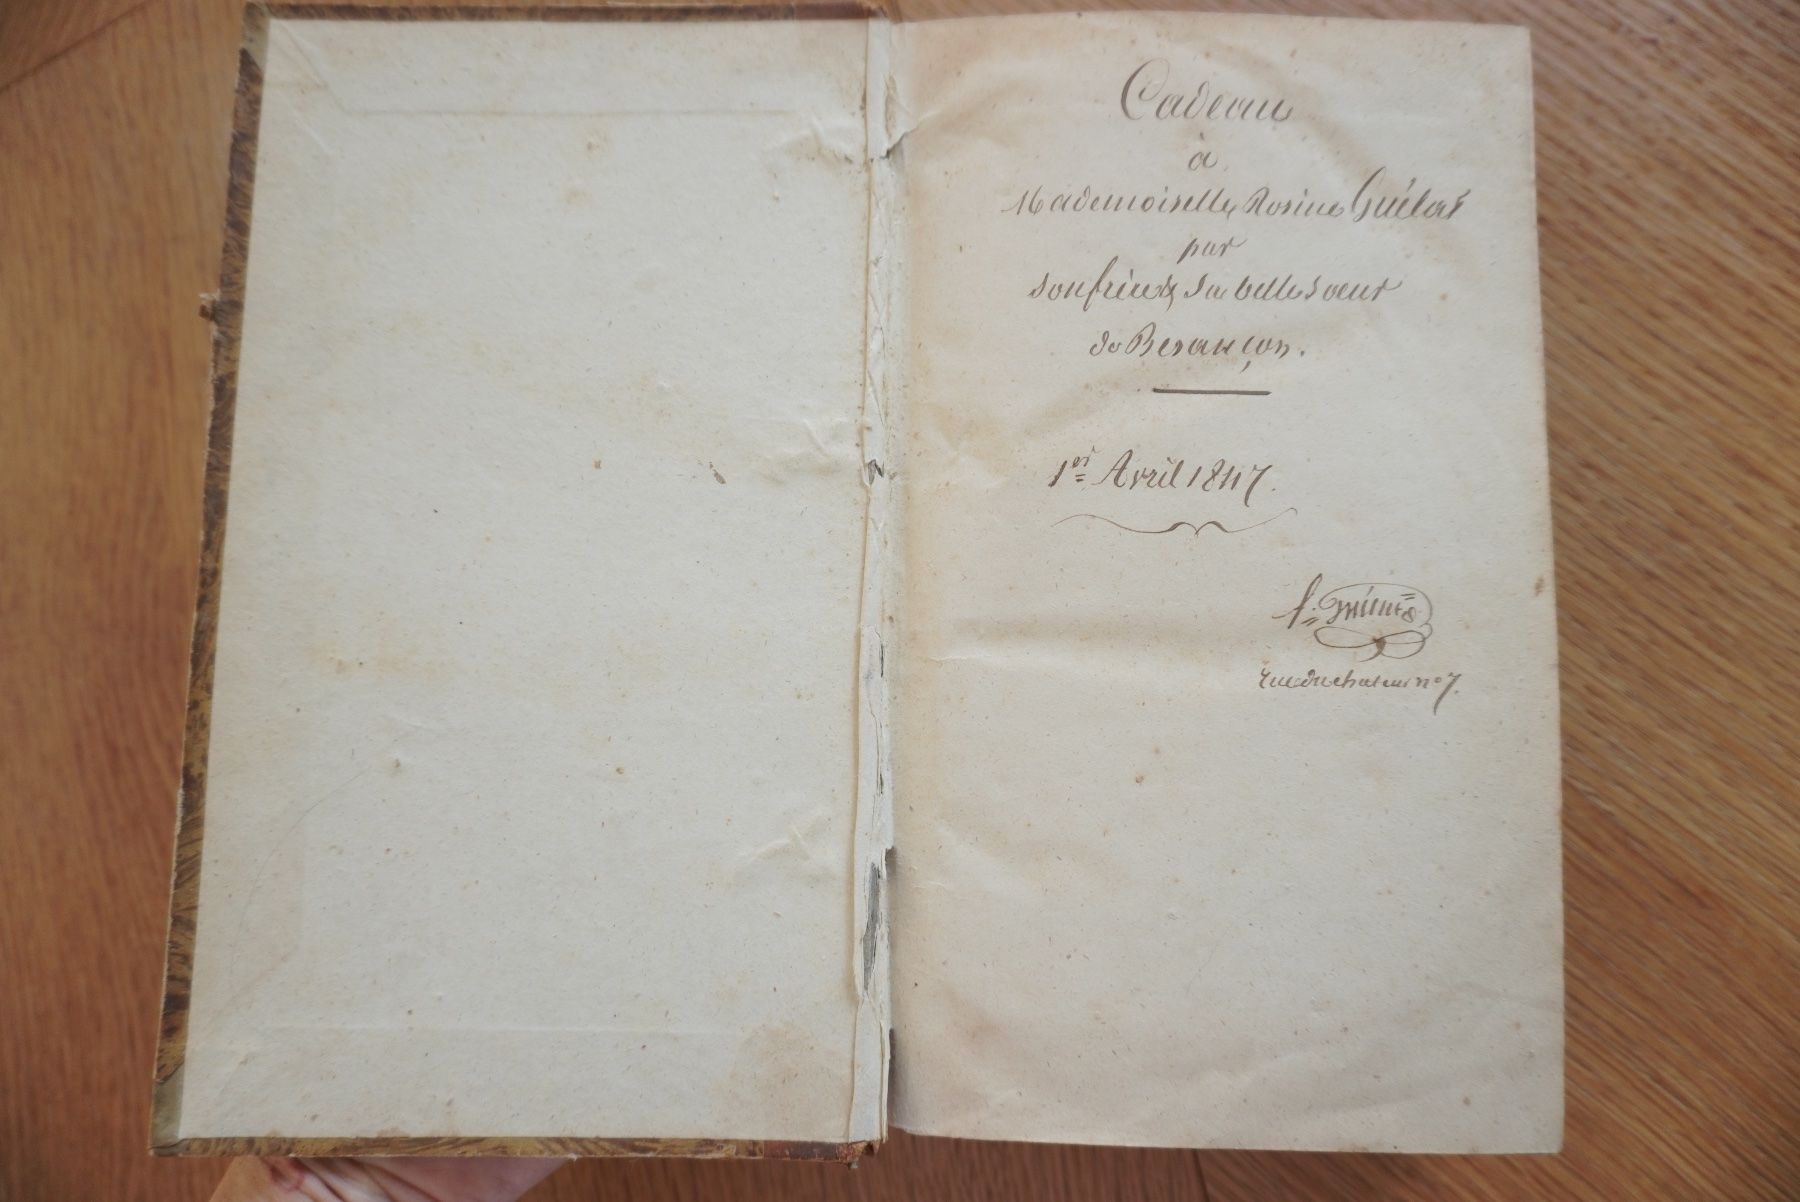 Cadeau
à
Mademoiselle Rosine
par
son frère & sa belle soeur
de Besançon.
1er Avril 1847.
rue du chateur n° 7.